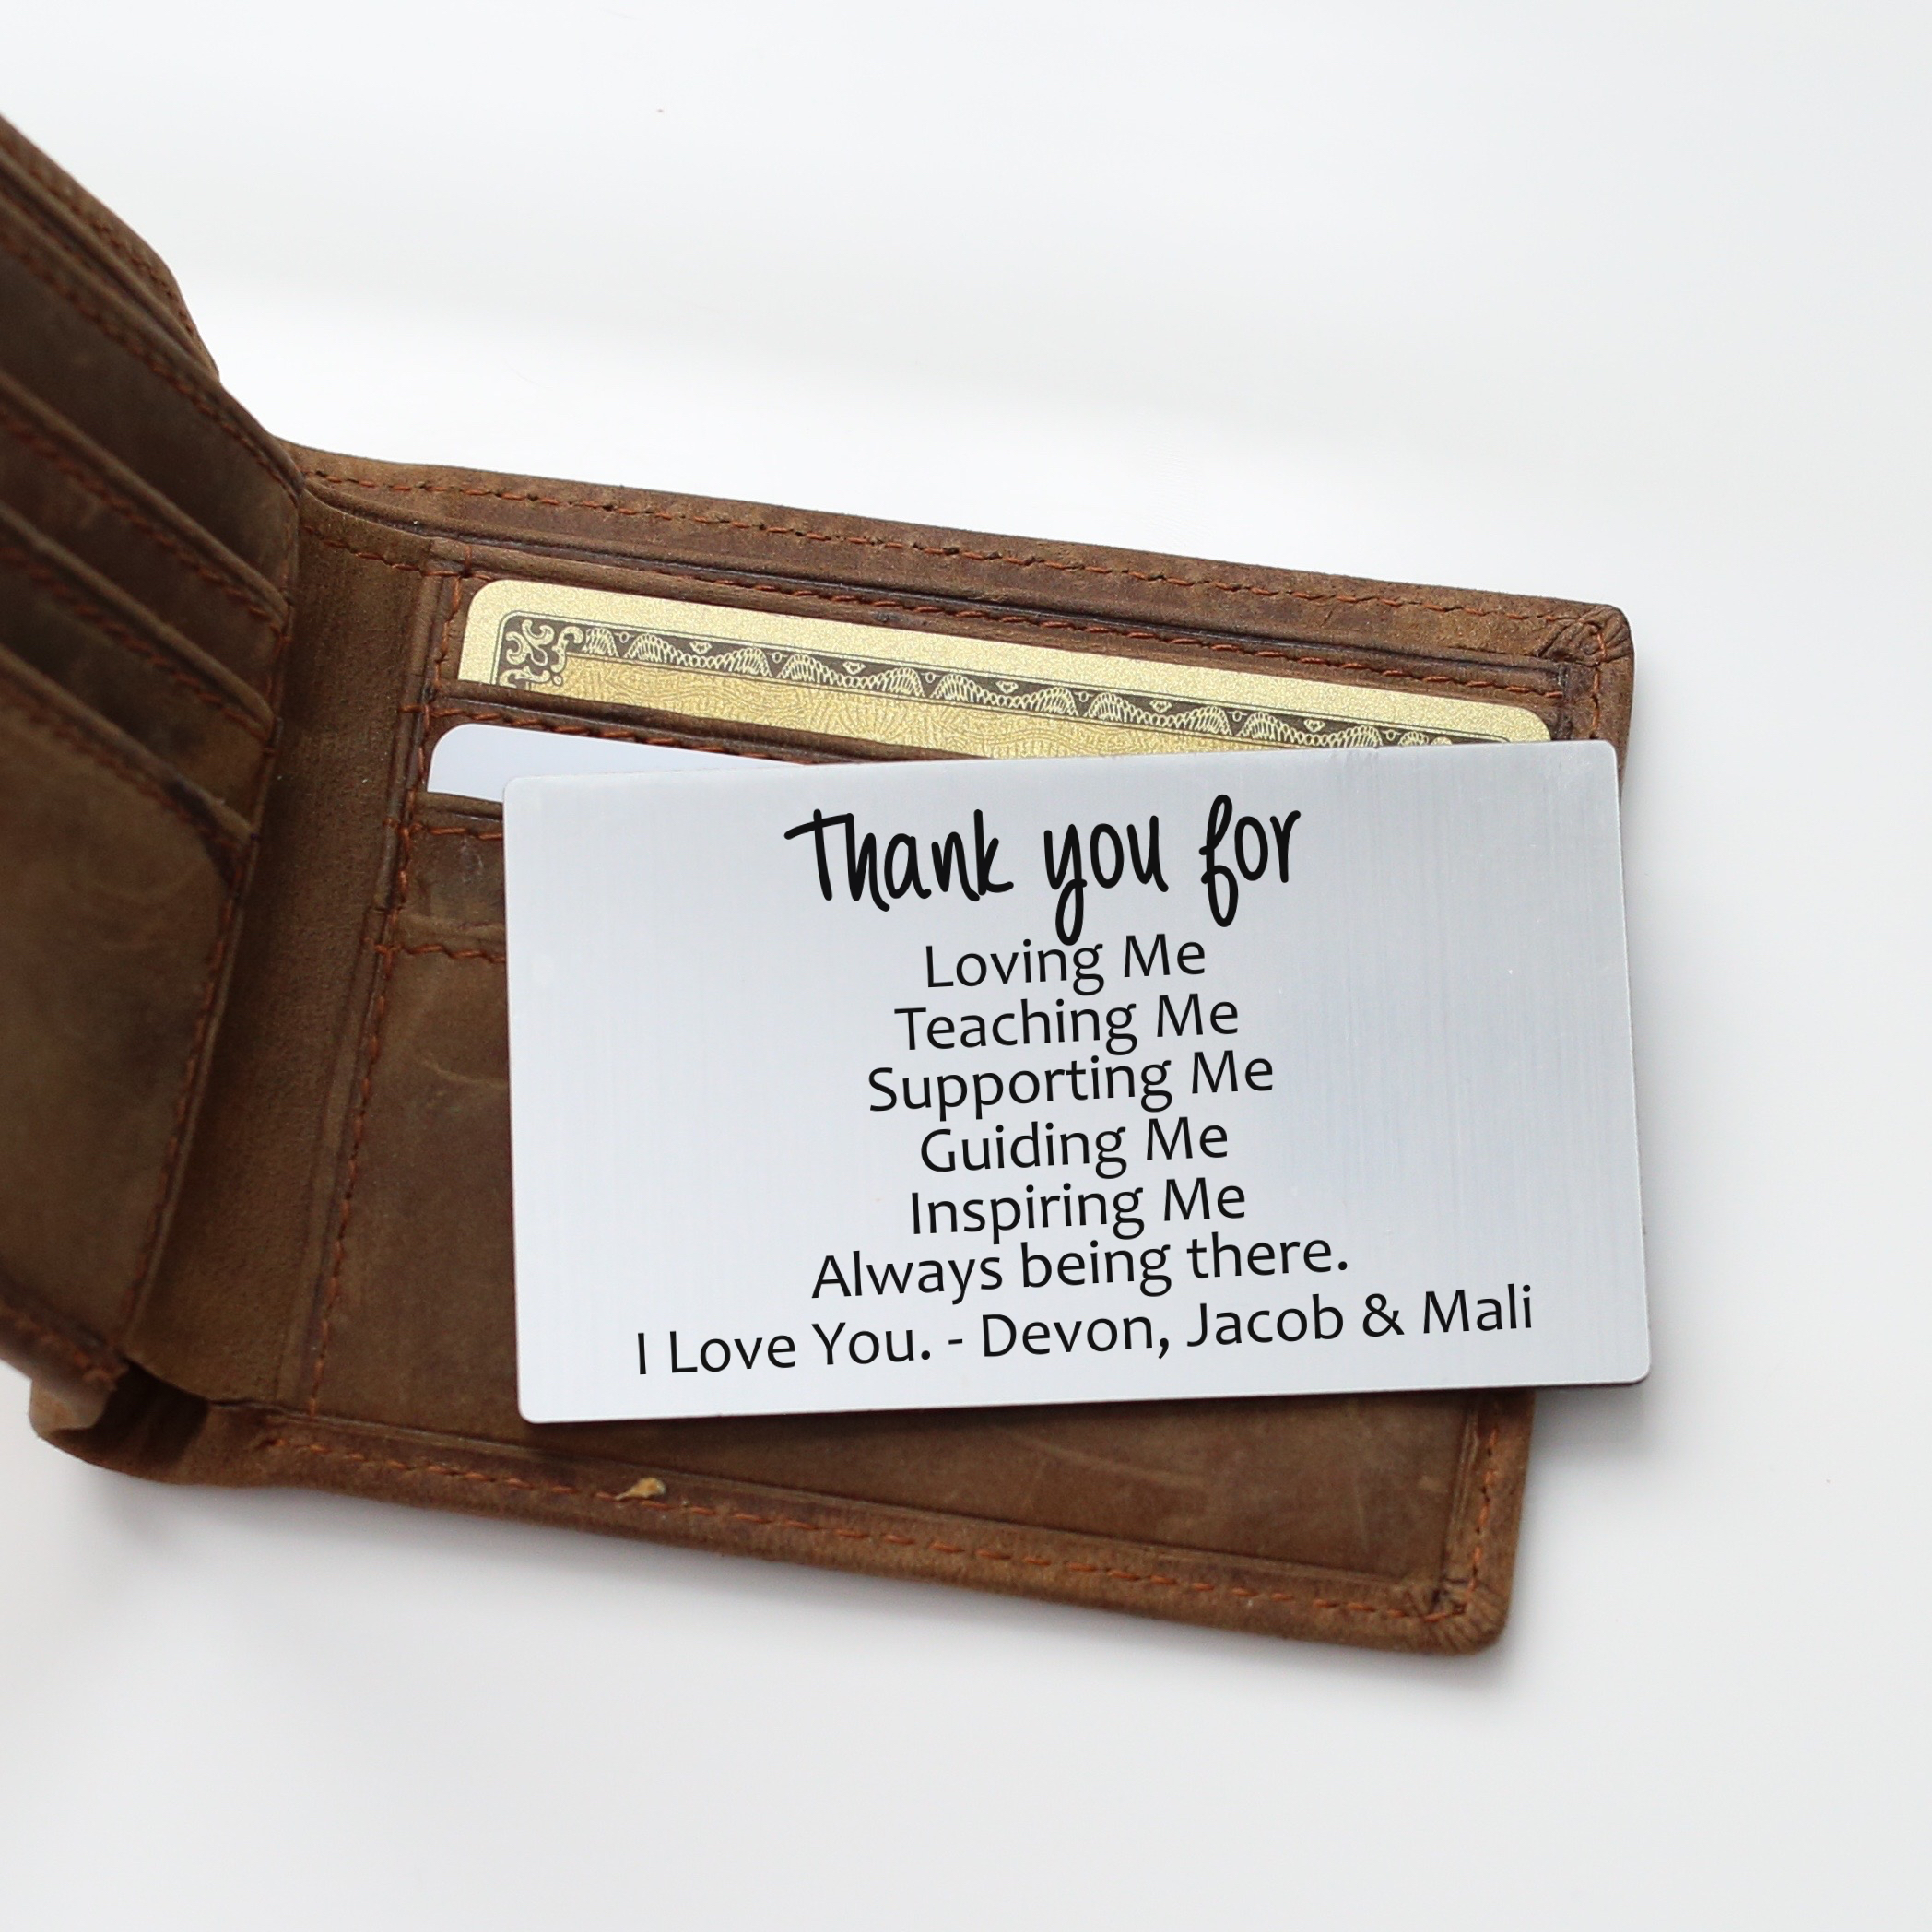 Thank you for
Loving Me
Teaching Me
Supporting Me
Guiding Me
Inspiring Me
Always being there.
I Love You. - Devon, Jacob & Mali